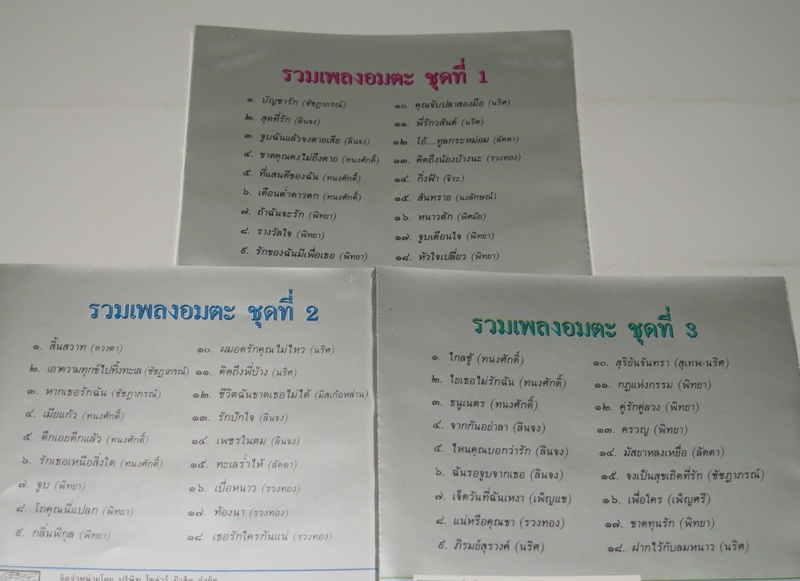 รวมเพลงอมตะ ชุดที่ 1
๑. บัญชารัก (ชัชฎาภรณ์)
๒. สุดที่รัก (ลินจง)
๓. จูบฉันแล้วจงตายเสีย (ลินจง)
๔. ขาดคุณคงไม่ถึงตาย (ทนงศักดิ์)
๕. ที่แสนดีของฉัน (ทนงศักดิ์)
๖. เดือนต่ำดาวตก (ทนงศักดิ์)
๗. ถ้าฉันจะรัก (พิทยา)
๘. รางวัลใจ (พิทยา)
๙. รักของฉันมีเพื่อเธอ (พิทยา)
๑๐. คุณจับปลาสองมือ (นริศ)
๑๑. พี่รักวสันต์ (นริศ)
๑๒. โอ้...ทูลกระหม่อม (ลัดดา)
๑๓. คิดถึงน้องบ้างนะ (รวงทอง)
๑๔. กิ่งฟ้า (จิระ)
๑๕. สันทราย (นงลักษณ์)
๑๖. หนาวตัก (พิศมัย)
๑๗. จูบเตือนใจ (พิทยา)
๑๘. หัวใจเปลี่ยว (พิทยา)
รวมเพลงอมตะ ชุดที่ 2
๑. สิ้นสวาท (ดวงตา)
๒. เอาความทุกข์ไปทิ้งทะเล (ชัชฎาภรณ์)
๓. หากเธอรักฉัน (ชัชฎาภรณ์)
๔. เมียแก้ว (ทนงศักดิ์)
๕. ดึกเอยดึกแล้ว (ทนงศักดิ์)
๖. รักเธอเหนือสิ่งใด (ทนงศักดิ์)
๗. จูบ (พิทยา)
๘. โถคุณนี่แปลก (พิทยา)
๙. กลิ่นพิกุล (พิทยา)
๑๐. ผมอดรักคุณไม่ไหว (นริศ)
๑๑. คิดถึงพี่บ้าง (นริศ)
๑๒. ชีวิตฉันขาดเธอไม่ได้ (มีสเก๊อหล่าน)
๑๓. รักปักใจ (ลินจง)
๑๔. เพชรในตม (ลินจง)
๑๕. ทะเลร่ำไห้ (ลัดดา)
๑๖. เบื่อหนาว (รวงทอง)
๑๗. ท้องนา (รวงทอง)
๑๘. เธอรักใครกันแน่ (รวงทอง)
จัดจำหน่ายโดย บริษัท
รวมเพลงอมตะ ชุดที่ 3
๑. ไกลชู้ (ทนงศักดิ์)
๒. ไยเธอไม่รักฉัน (ทนงศักดิ์)
๓. ธนูเนตร (ทนงศักดิ์)
๔. จากกันอย่าลา (ลินจง)
๕. ไหนคุณบอกว่ารัก (ลินจง)
๖. ฉันรอจูบจากเธอ (ลินจง)
๗. เจ็ดวันที่ฉันเหงา (เพ็ญแข)
๘. แน่หรือคุณขา (รวงทอง)
๙. ภิรมย์สุรางค์ (นริศ)
๑๐. สุริยันจันทรา (สุเทพ-นริศ)
๑๑. กฎแห่งกรรม (พิทยา)
๑๒. คู่รักคู่ลวง (พิทยา)
๑๓. ครวญ (พิทยา)
๑๔. มัสยาหลงเหยื่อ (ลัดดา)
๑๕. จงเป็นสุขเถิดที่รัก (ชัชฎาภรณ์)
๑๖. เพื่อใคร (เพ็ญศรี)
๑๗. ขาดทุนรัก (พิทยา)
๑๘. ฝากไว้กับลมหนาว (นริศ)